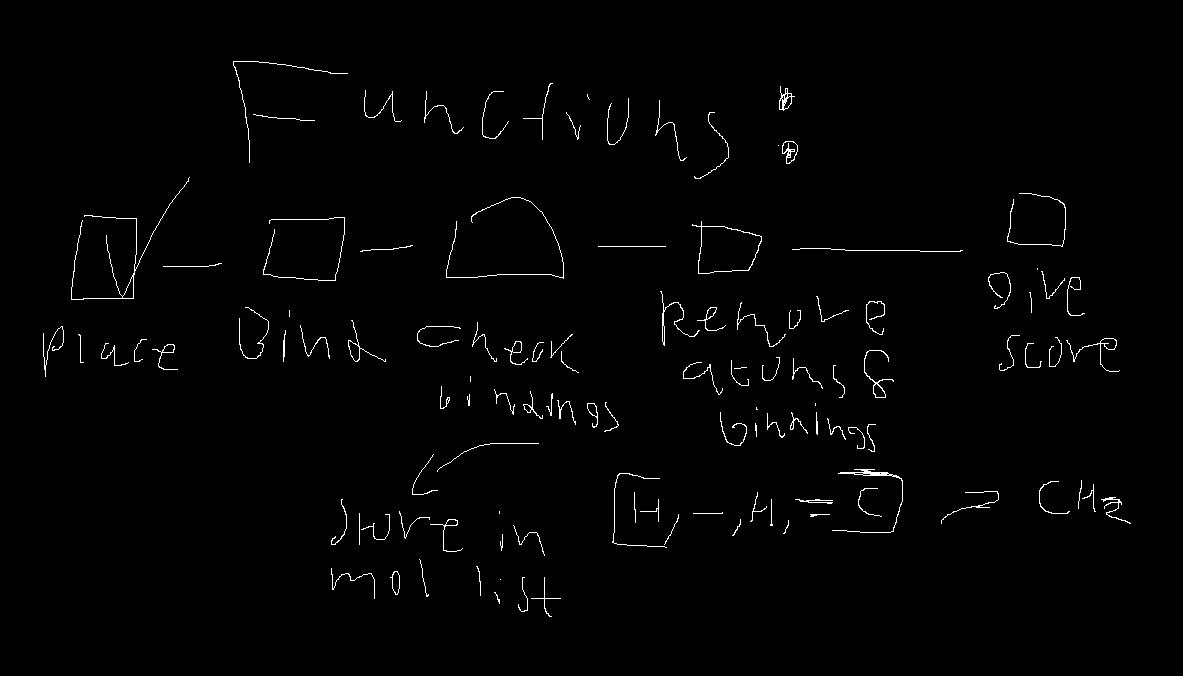 Functions:
Place
Bind
Check
bindings
Remove
atoms &
bindings
give
score
store in
mol list
H, –, H, = C
CH2